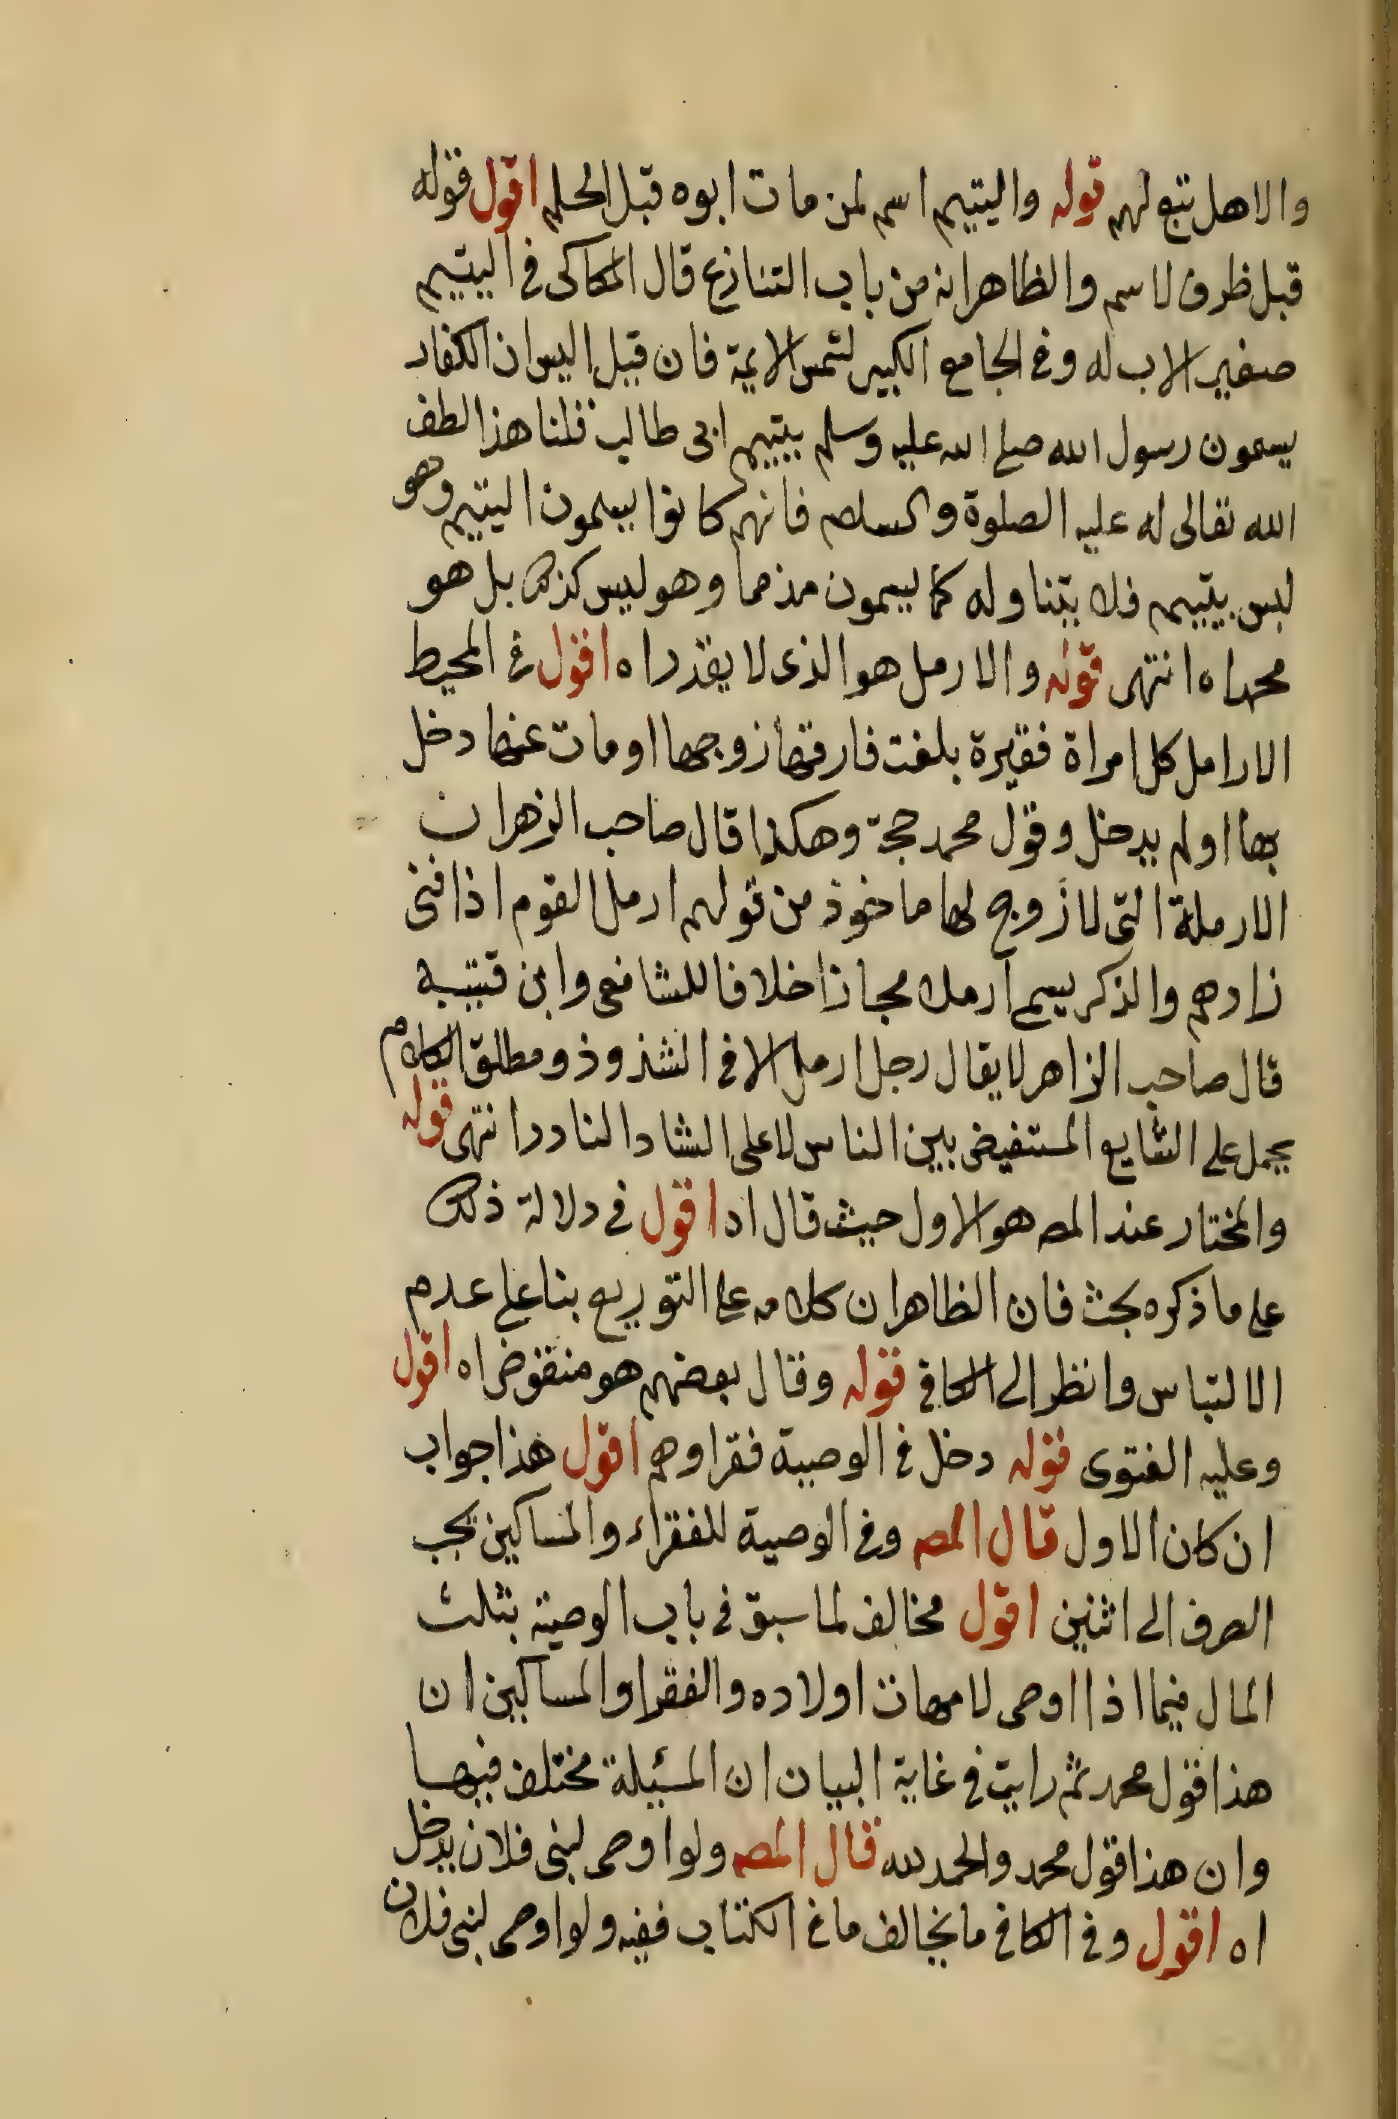 والاهل تبع لهم قوله واليتيم اسم لمن مات ابوه قبل الحلم اقول قوله
قبل ظرف لاسم والظاهر انه من باب التنازع قال الكاكى فى اليتيم
صغير لا اب له وفى الجامع الكبير لشمس الايمة فان قيل اليس ان الكفار
يسمون رسول الله صلى الله عليه وسلم بيتيم ابى طالب قلنا هذا لطف
الله تعالى له عليه الصلوة والسلام فانهم كانوا يسمون اليتيم وهو
ليس بيتيم فلا يتناوله كما يسمون مذمما وهو ليس كذلك بل هو
محمد اه انتهى قوله والارمل هو الذى لا يقدر اه اقول فى المحيط
الارامل كل امراة فقيرة بلغت فارقها زوجها او مات عنها دخل
بها او لم يدخل وقول محمد حجة وهكذا قال صاحب الزهر ان
الارملة التى لا زوج لها ماخوذ من قولهم ارمل القوم اذا فنى
زادهم والذكر يسمى ارملا مجازا خلافا للشافعى وابن قتيبة
قال صاحب الزاهر لا يقال رجل ارمل الا فى الشذوذ ومطلق الكلام
يحمل على الشايع المستفيض بين الناس لا على الشاد النادر انتهى قوله
والمختار عند المص هو الاول حيث قال اد اقول فى دلالة ذلك
على ما ذكره بحث فان الظاهر ان كلامه على التوزيع بنا على عدم
الالتباس وانظر الى الكافى قوله وقال بعضهم هو منقوض اه اقول
وعليه الفتوى قوله دخل فى الوصية فقراوهم اقول هذا جواب
ان كان الاول قال المص وفى الوصية للفقراء والمساكين يجب
الصرف الى اثنين اقول مخالف لما سبق فى باب الوصية بثلث
المال فيما اذا اوصى لامهات اولاده والفقرا والمساكين ان
هذا قول محمد ثم رايت فى غاية البيان ان المسئلة مختلف فيها
وان هذا قول محمد والحمد لله قال المص ولو اوصى لبنى فلان يدخل
اه اقول وفى الكافى ما يخالف ما فى الكتاب ففيه ولو اوصى لبنى فلان